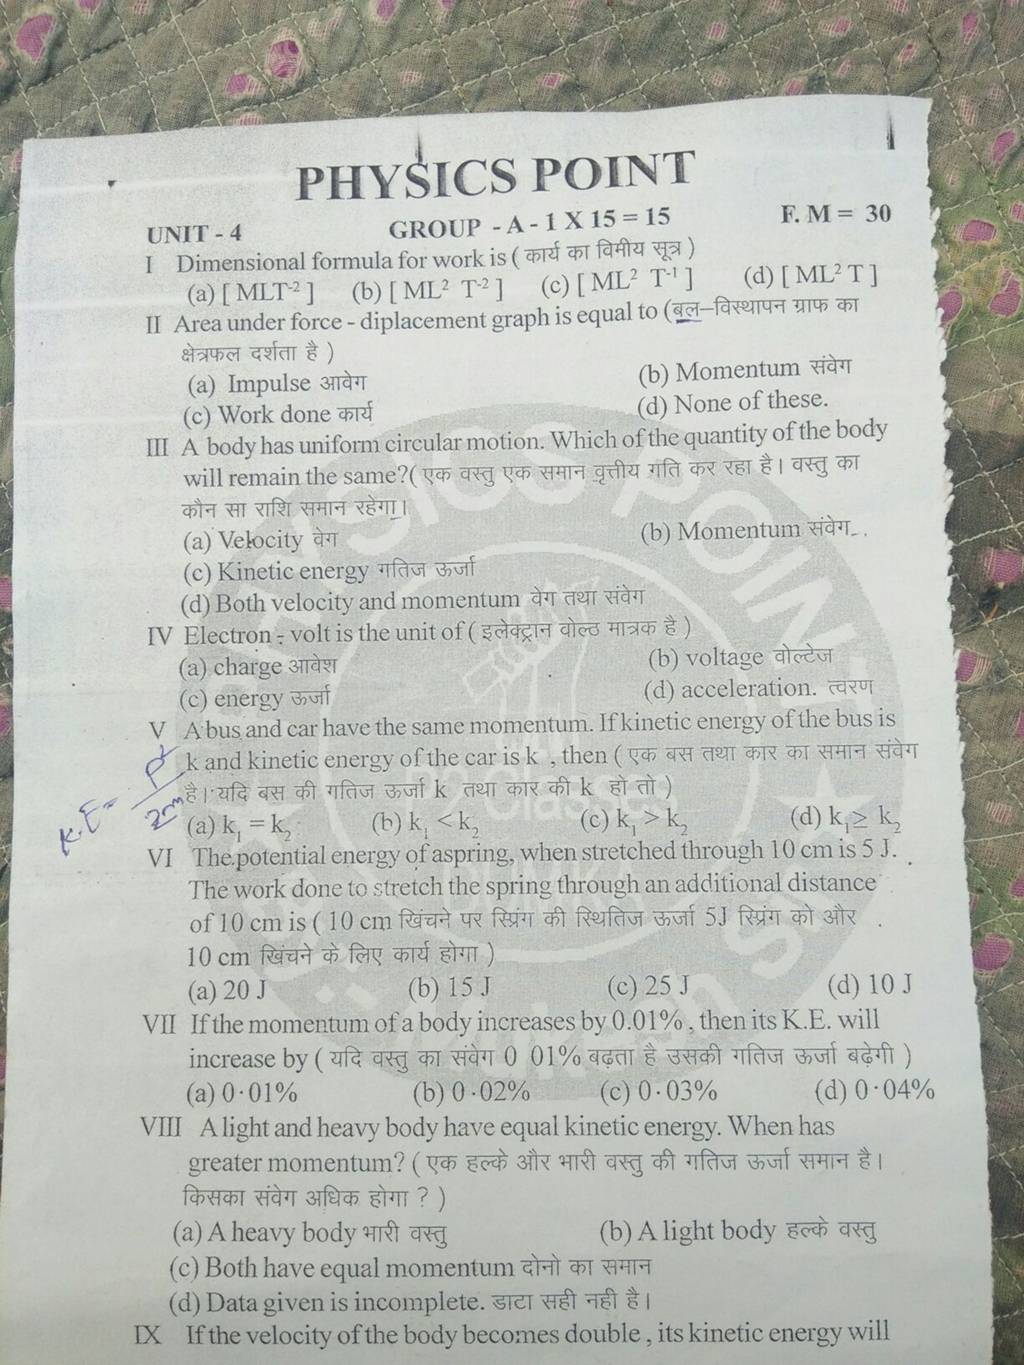 PHYSICS POINT
UNIT - 4 GROUP - A - 1 X 15 = 15 F. M = 30
I Dimensional formula for work is ( कार्य का विमीय सूत्र )
(a) [ MLT⁻² ] (b) [ ML² T⁻² ] (c) [ ML² T⁻¹ ] (d) [ ML² T ]
II Area under force - diplacement graph is equal to (बल–विस्थापन ग्राफ का
क्षेत्रफल दर्शता है )
(a) Impulse आवेग (b) Momentum संवेग
(c) Work done कार्य (d) None of these.
III A body has uniform circular motion. Which of the quantity of the body
will remain the same?( एक वस्तु एक समान वृत्तीय गति कर रहा है। वस्तु का
कौन सा राशि समान रहेगा।
(a) Velocity वेग (b) Momentum संवेग
(c) Kinetic energy गतिज ऊर्जा
(d) Both velocity and momentum वेग तथा संवेग
IV Electron - volt is the unit of ( इलेक्ट्रान वोल्ठ मात्रक है )
(a) charge आवेश (b) voltage वोल्टेज
(c) energy ऊर्जा (d) acceleration. त्वरण
V A bus and car have the same momentum. If kinetic energy of the bus is
k and kinetic energy of the car is k , then ( एक बस तथा कार का समान संवेग
है। यदि बस की गतिज ऊर्जा k तथा कार की k हो तो )
K.E = P²/2m
(a) k₁ = k₂ (b) k₁ < k₂ (c) k₁ > k₂ (d) k₁ ≥ k₂
VI The potential energy of aspring, when stretched through 10 cm is 5 J.
The work done to stretch the spring through an additional distance
of 10 cm is ( 10 cm खिंचने पर स्प्रिंग की स्थितिज ऊर्जा 5J स्प्रिंग को और
10 cm खिंचने के लिए कार्य होगा )
(a) 20 J (b) 15 J (c) 25 J (d) 10 J
VII If the momentum of a body increases by 0.01% , then its K.E. will
increase by ( यदि वस्तु का संवेग 0 01% बढ़ता है उसकी गतिज ऊर्जा बढ़ेगी )
(a) 0·01% (b) 0·02% (c) 0·03% (d) 0·04%
VIII A light and heavy body have equal kinetic energy. When has
greater momentum? ( एक हल्के और भारी वस्तु की गतिज ऊर्जा समान है।
किसका संवेग अधिक होगा ? )
(a) A heavy body भारी वस्तु (b) A light body हल्के वस्तु
(c) Both have equal momentum दोनो का समान
(d) Data given is incomplete. डाटा सही नही है।
IX If the velocity of the body becomes double , its kinetic energy will